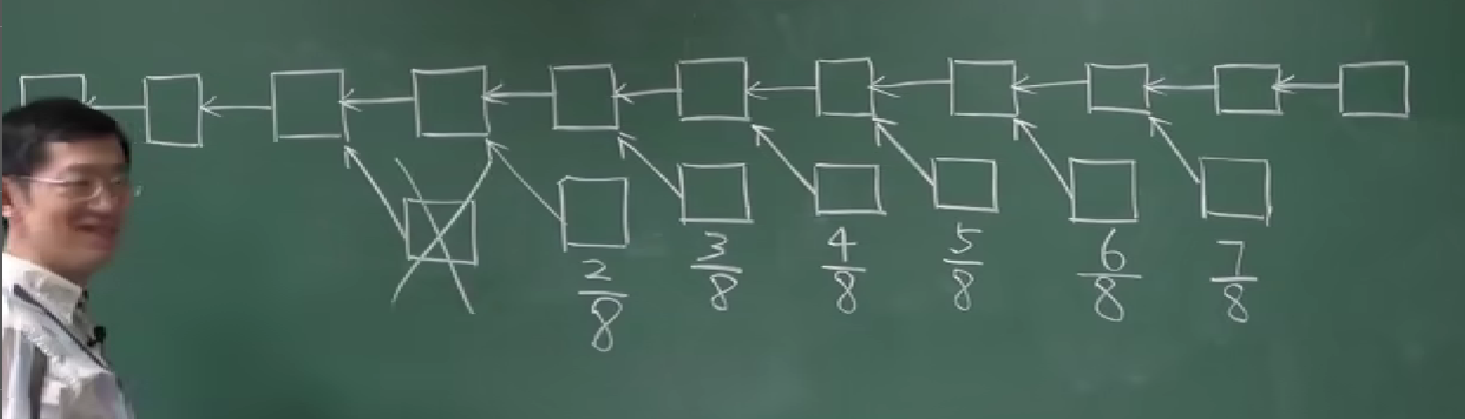 2/8 3/8 4/8 5/8 6/8 7/8